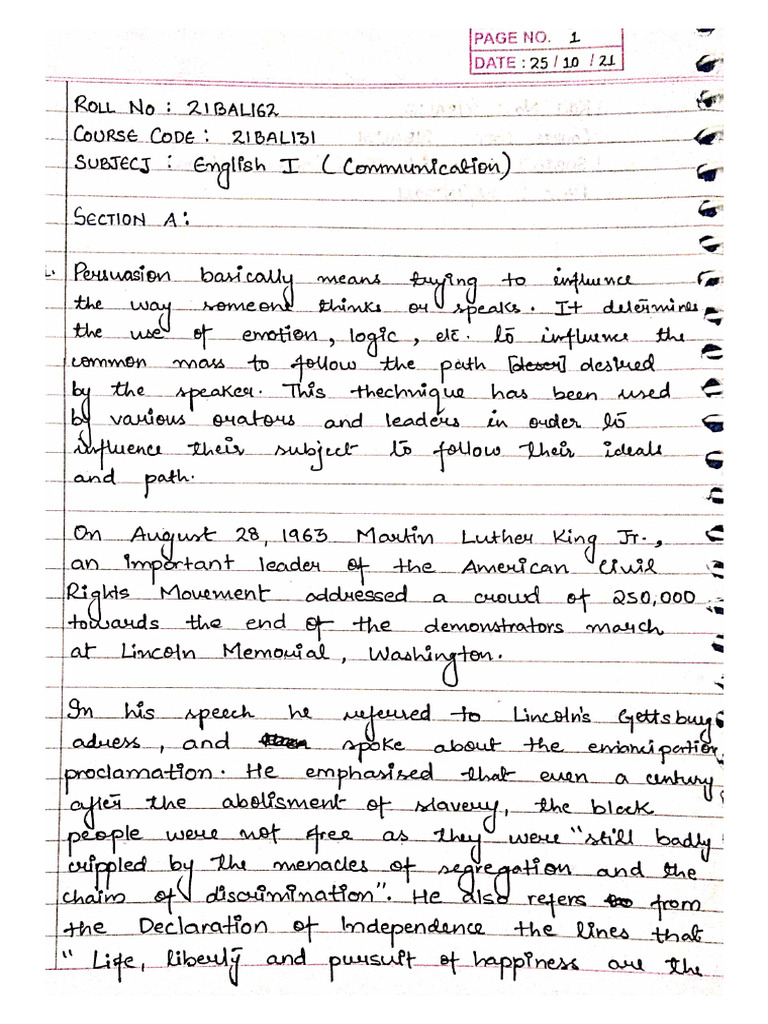 PAGE NO. 1
DATE : 25 / 10 / 21
ROLL NO : 21BAL162
COURSE CODE : 21BAL131
SUBJECT : English I (Communication)
SECTION A :
1. Persuasion basically means trying to influence
the way someone thinks or speaks. It determines
the use of emotion, logic, etc. to influence the
common mass to follow the path [deser] desired
by the speaker. This thechnique has been used
by various orators and leaders in order to
influence their subject to follow their ideals
and path.
On August 28, 1963 Martin Luther King Jr.,
an important leader of the American Civil
Rights Movement addressed a crowd of 250,000
towards the end of the demonstrators march
at Lincoln Memorial, Washington.
In his speech he referred to Lincoln's Gettsbury
adress, and spoke about the emancipation
proclamation. He emphasised that even a century
after the abolisment of slavery, the black
people were not free as they were "still badly
crippled by the menacles of segregation and the
chains of discrimination". He also refers to from
the Declaration of Independence the lines that
" Life, liberty and pursuit of happiness are the